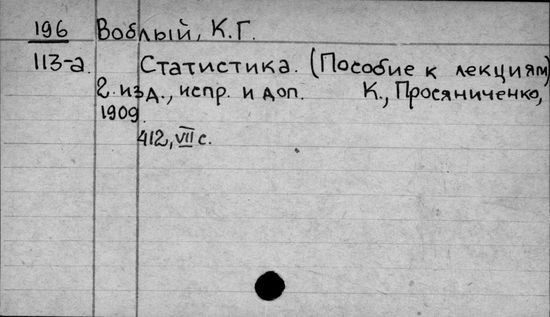 196 Воблый, К.Г.
113-а. Статистика. (Пособие к лекциям)
2. изд., испр. и доп. К., Просяниченко,
1909.
412, VII с.